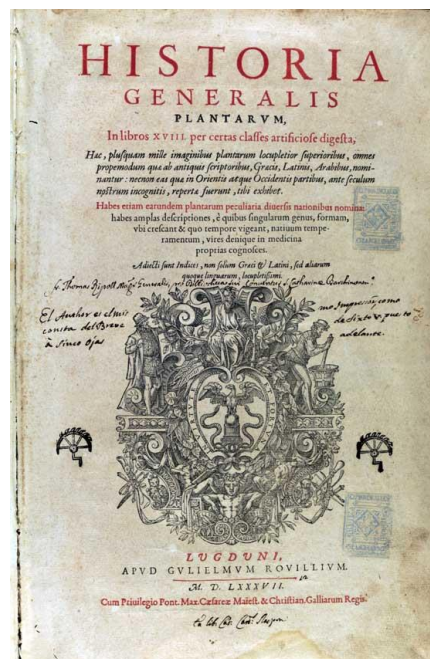 HISTORIA
GENERALIS
PLANTARVM,
In libros XVIII. per certas classes artificiose digesta,
Hæc, plusquam mille imaginibus plantarum locupletior superioribus, omnes
propemodum quæ ab antiquis scriptoribus, Græcis, Latinis, Arabibus, nomi-
nantur: necnon eas quæ in Orientis atque Occidentis partibus, ante seculum
nostrum incognitis, repertæ fuerunt, tibi exhibet.
Habes etiam earundem plantarum peculiaria diuersis nationibus nomina:
habes amplas descriptiones, è quibus singularum genus, formam,
vbi crescant & quo tempore vigeant, natiuum tempe-
ramentum, vires denique in medicina
proprias cognosces.
Adiecti sunt Indices, non solùm Græci & Latini, sed aliarum
quoque linguarum, locupletissimi.
fr. Thomas Ripoll
El Author es el mis mo Jmpresor, como
consta del Breve de Sixto V. puesto
à sinco ojas adelante.
LVGDVNI,
APVD GVLIELMVM ROVILLIVM.
M. D. LXXXVII.
Cum Priuilegio Pont. Max. Cæsareæ Maiest. & Christian. Galliarum Regis.